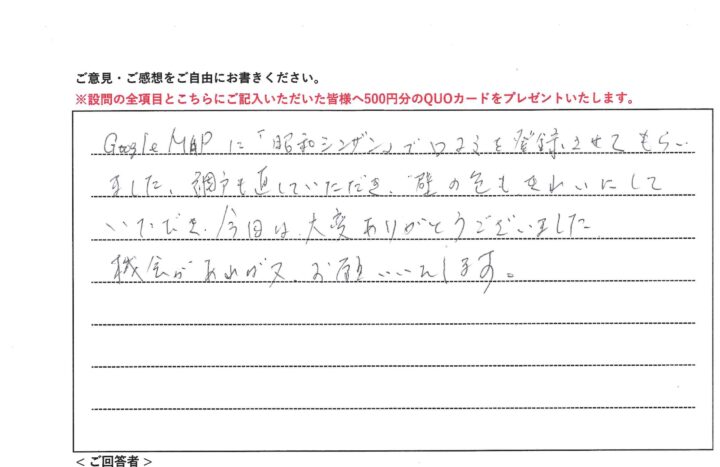 ご意見・ご感想をご自由にお書きください。
※設問の全項目とこちらにご記入いただいた皆様へ500円分のQUOカードをプレゼントいたします。
Google MAPに「昭和シンザン」で口コミを登録させてもらい
ました、網戸も直していただき、壁の色もきれいにして
いただき、今回は、大変ありがとうございました
機会があれば又、お願いいたします。
< ご回答者 >